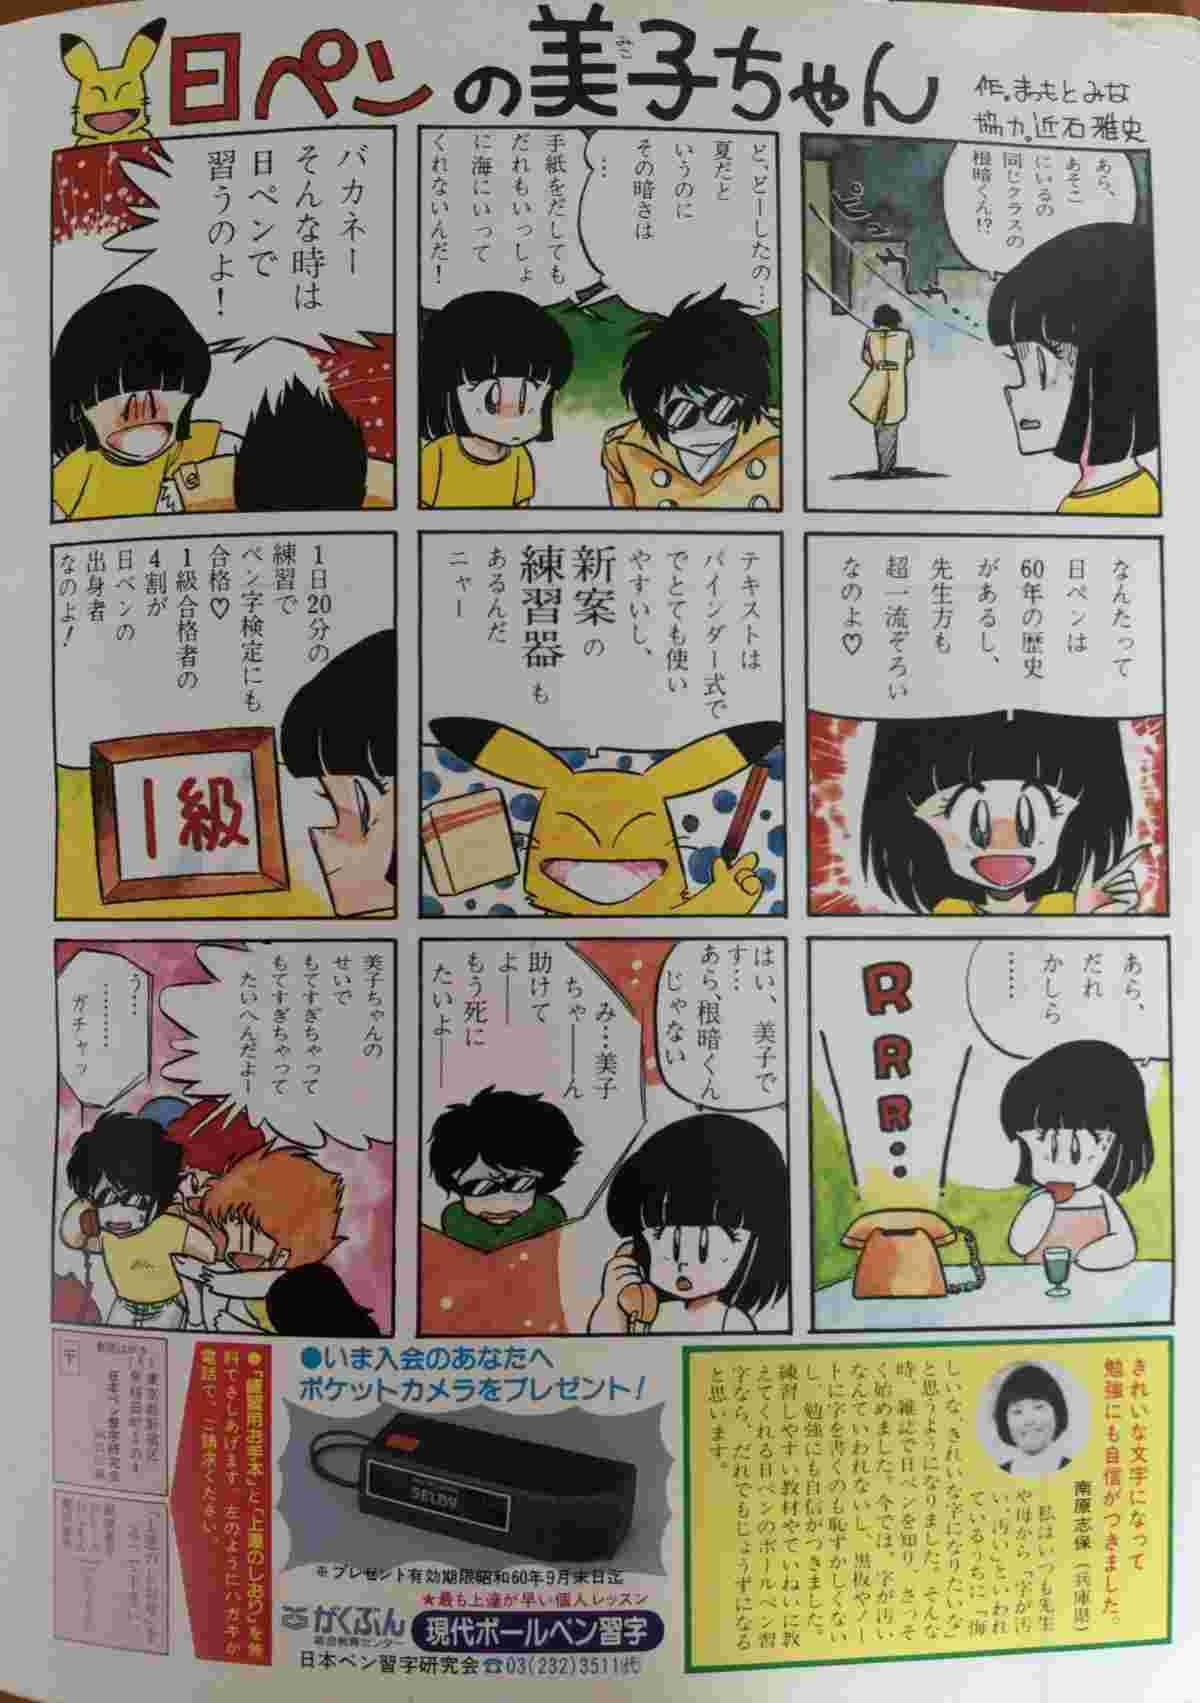 日ペンの美子ちゃん
みこ
作。まつもとみな
協力。近石雅史
あら、
あそこ
にいるの
同じクラスの
根暗くん!?
ピュー
ど、どーしたの…
夏だと
いうのに
その暗さは
…
手紙をだしても
だれもいっしょ
に海にいって
くれないんだ！
バカネー
そんな時は
日ペンで
習うのよ！
なんたって
日ペンは
60年の歴史
があるし、
先生方も
超一流ぞろい
なのよ♡
テキストは
バインダー式で
でとても使い
やすいし、
新案の
練習器も
あるんだ
ニャー
1日20分の
練習で
ペン字検定にも
合格♡
1級合格者の
4割が
日ペンの
出身者
なのよ！
1級
あら、
だれ
かしら
……
RRR…
はい、美子で
す…
あら、根暗くん
じゃない
み…美子
ちゃーーん
助けて
よー
もう死に
たいよー
美子ちゃんの
せいで
もてすぎちゃって
もてすぎちゃって
たいへんだよー
う…
………
ガチャッ
きれいな文字になって
勉強にも自信がつきました。
南原志保（兵庫県）
私はいつも先生
や母から「字が汚
い、汚い」といわれ
ているうちに「海
しいな、きれいな字になりたいな」
と思うようになりました。そんな
時、雑誌で日ペンを知り、さっそ
く始めました。今では、字が汚い
なんていわれないし、黒板やノー
トに字を書くのも恥ずかしくない
し、勉強にも自信がつきました。
練習しやすい教材やていねいに教
えてくれる日ペンのボールペン習
字なら、だれでもじょうずになる
と思います。
●いま入会のあなたへ
ポケットカメラをプレゼント！
※プレゼント有効期限昭和60年9月末日迄
★最も上達が早い個人レッスン
がくぶん
総合教育センター
現代ボールペン習字
日本ペン習字研究会 ☎03(232)3511㈹
●「練習用お手本」と「上達のしおり」を無
料でさしあげます。左のようにハガキか
電話で、ご請求ください。
〒
日本ペン習字研究会